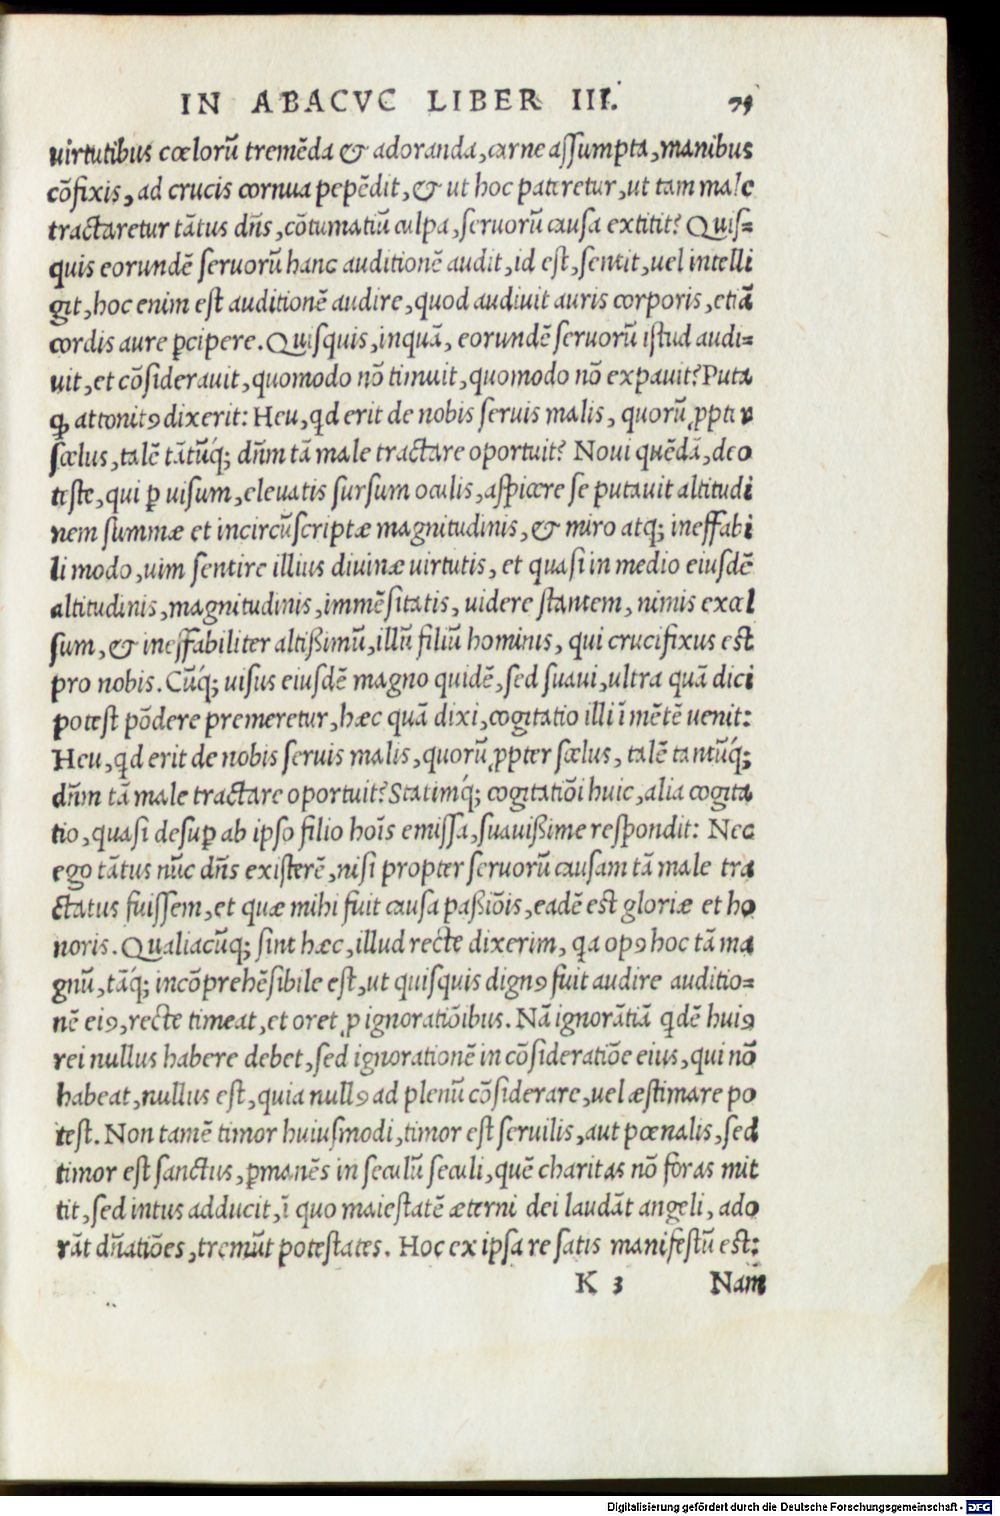 IN ABACVC LIBER III. 75
uirtutibus cœlorū tremēda & adoranda, carne assumpta, manibus
cōfixis, ad crucis cornua pepēdit, & ut hoc pateretur, ut tam male
tractaretur tātus dñs, cōtumatiū culpa, seruorū causa extitit? Quis=
quis eorundē seruorū hanc auditionē audit, id est, sentit, uel intelli
git, hoc enim est auditionē audire, quod audiuit auris corporis, etiā
cordis aure ꝑcipere. Quisquis, inquā, eorundē seruorū istud audi=
uit, et cōsiderauit, quomodo nō timuit, quomodo nō expauit? Puta
ꝙ attonitꝰ dixerit: Heu, qd erit de nobis seruis malis, quorū ꝓpter
scelus, talē tātūq́; dñm tā male tractare oportuit? Noui quēdā, deo
teste, qui ꝑ uisum, eleuatis sursum oculis, aspicere se putauit altitudi
nem summæ et incircūscriptæ magnitudinis, & miro atq; ineffabi
li modo, uim sentire illius diuinæ uirtutis, et quasi in medio eiusdē
altitudinis, magnitudinis, immēsitatis, uidere stantem, nimis excel
sum, & ineffabiliter altißimū, illū filiū hominis, qui crucifixus est
pro nobis. Cūq́; uisus eiusdē magno quidē, sed suaui, ultra quā dici
potest pōdere premeretur, hæc quā dixi, cogitatio illi ī mētē uenit:
Heu, qd erit de nobis seruis malis, quorū ꝓpter scelus, talē tantūq́;
dñm tā male tractare oportuit? Statimq́; cogitatiōi huic, alia cogita
tio, quasi desuꝑ ab ipso filio hoīs emissa, suauißime respondit: Nec
ego tātus nūc dñs existerē, nisi propter seruorū causam tā male tra
ctatus fuissem, et quæ mihi fuit causa paßiōis, eadē est gloriæ et ho
noris. Qualiacūq; sint hæc, illud recte dixerim, qa opꝰ hoc tā ma
gnū, tāq́; incōprehēsibile est, ut quisquis dignꝰ fuit audire auditio=
nē eiꝰ, recte timeat, et oret ꝓ ignoratiōibus. Nā ignorātiā qdē huiꝰ
rei nullus habere debet, sed ignorationē in cōsideratiōe eius, qui nō
habeat, nullus est, quia nullꝰ ad plenū cōsiderare, uel æstimare po
test. Non tamē timor huiusmodi, timor est seruilis, aut pœnalis, sed
timor est sanctus, ꝑmanēs in seculū seculi, quē charitas nō foras mit
tit, sed intus adducit, ī quo maiestatē æterni dei laudāt angeli, ado
rāt dñatiōes, tremūt potestates. Hoc ex ipsa re satis manifestū est:
K 3 Nam
Digitalisierung gefördert durch die Deutsche Forschungsgemeinschaft - DFG